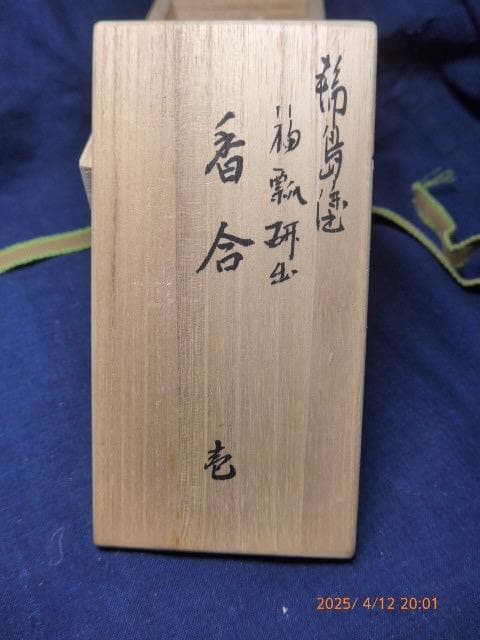 輪島塗
福瓢研出
香合
壱
2025/ 4/12 20:01